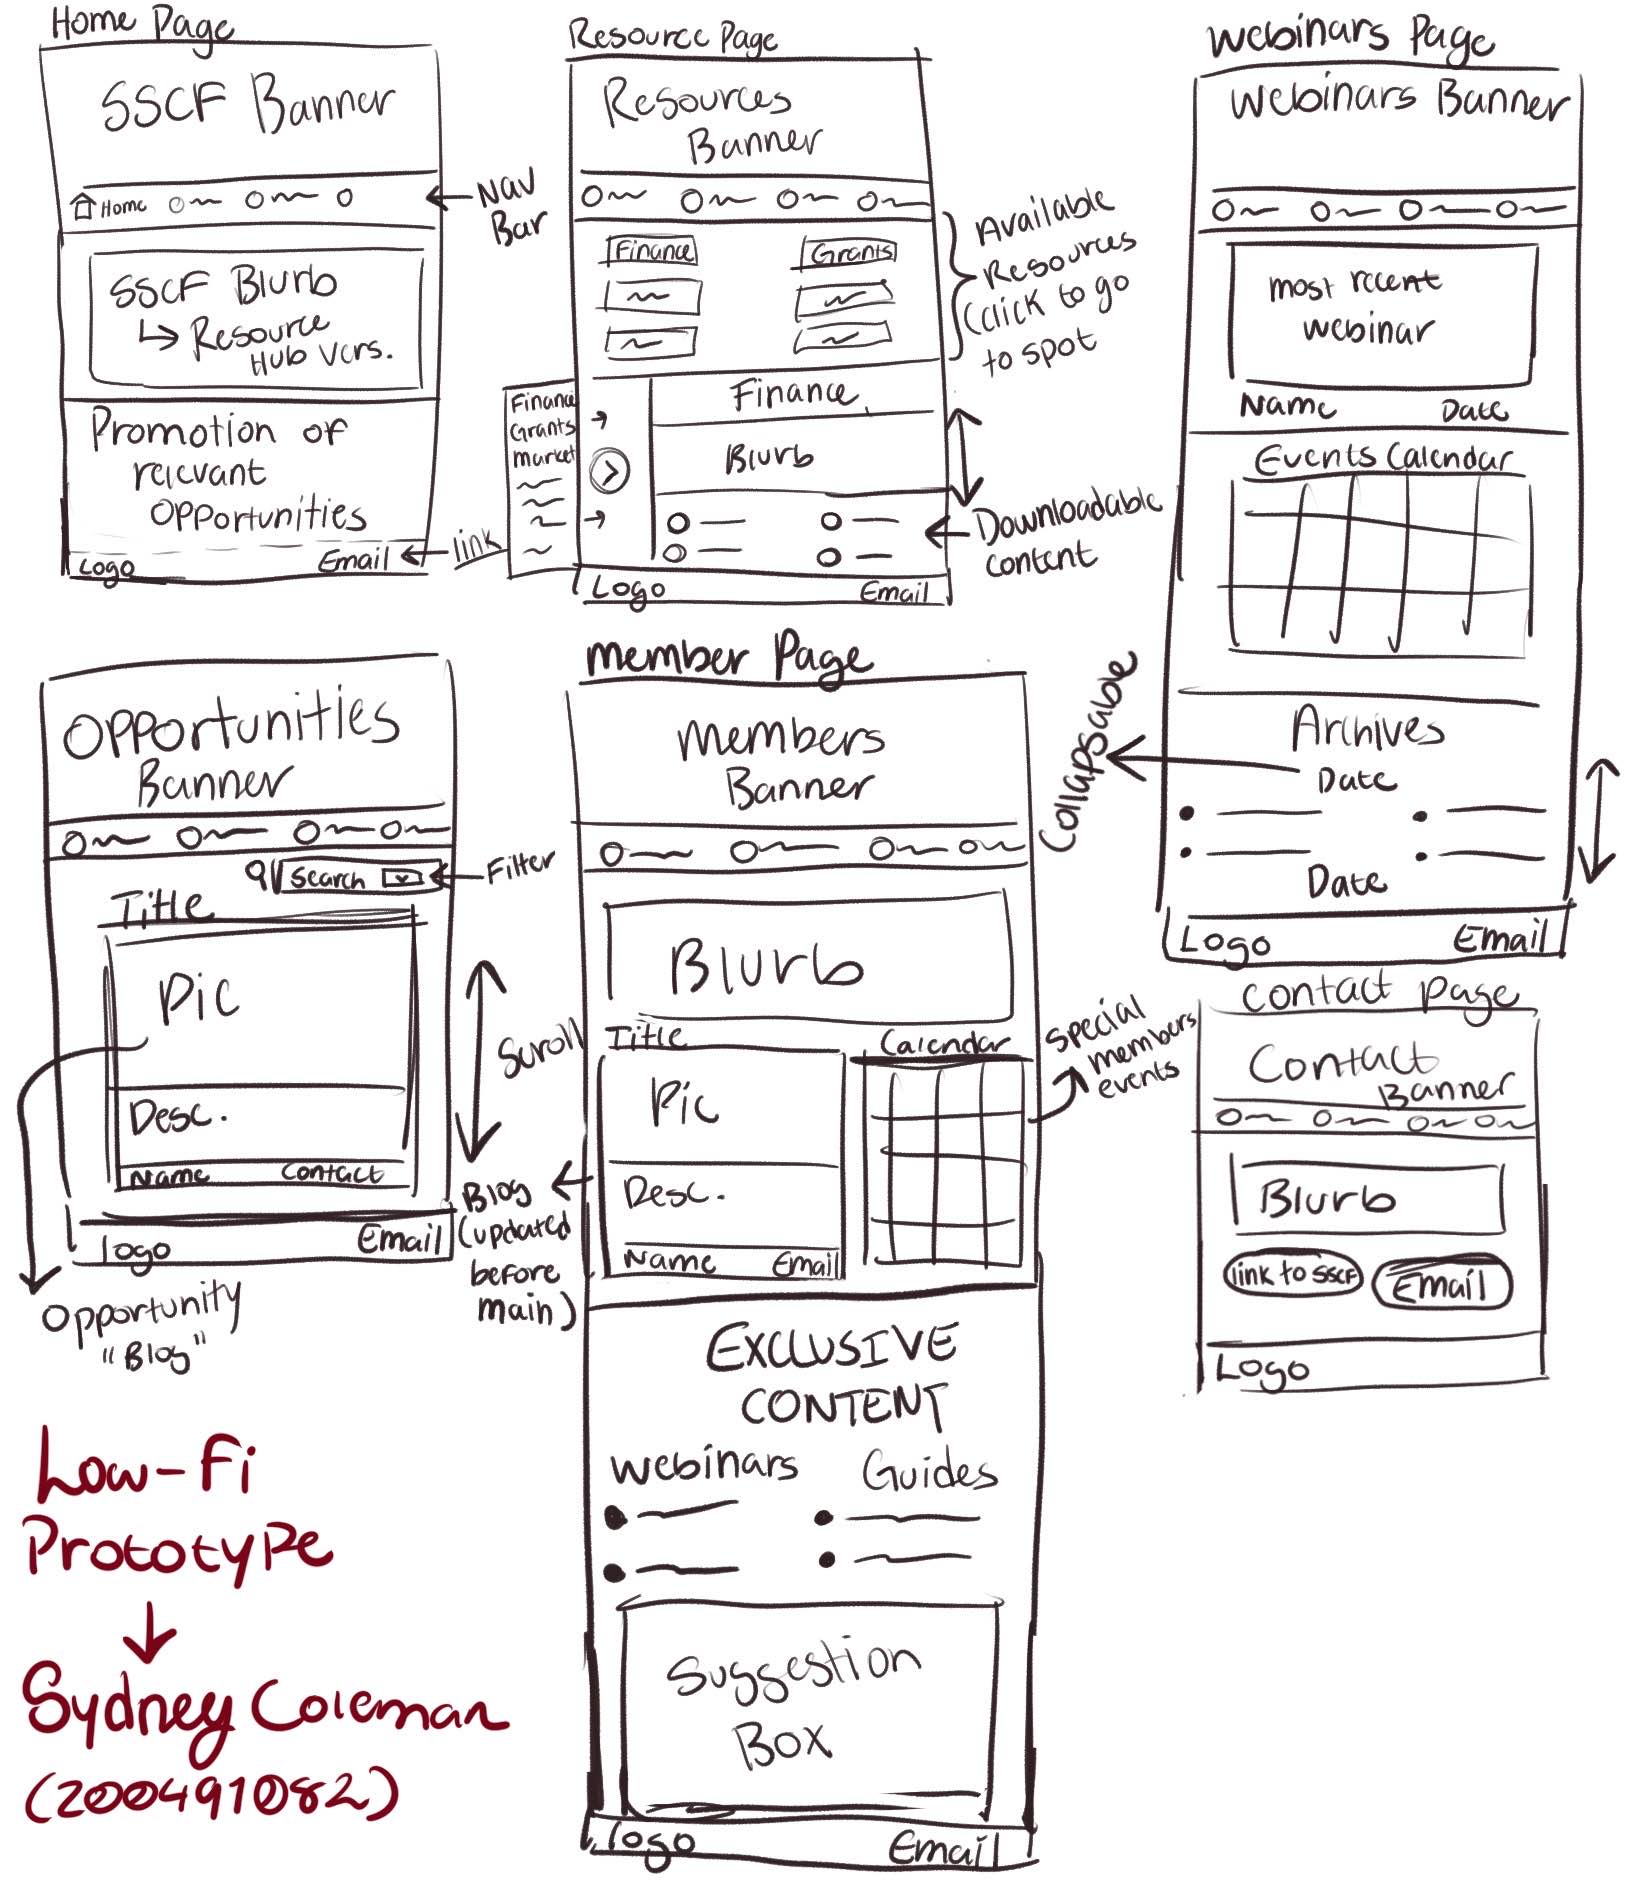 Home Page
SSCF Banner
Home
Nav
Bar
SSCF Blurb
Resource
Hub Vers.
Promotion of
relevant
opportunities
Logo Email
link
Resource Page
Resources
Banner
Finance Grants
Available
Resources
(click to go
to spot
Finance
Grants
market
Finance
Blurb
Downloadable
content
Logo Email
Webinars Page
Webinars Banner
most recent
webinar
Name Date
Events Calendar
Archives
Date
Collapsable
Date
Logo Email
Opportunities
Banner
Search
Filter
Title
Pic
Desc.
Name Contact
Scroll
Logo Email
Opportunity
"Blog"
Member Page
Members
Banner
Blurb
Title Calendar
Pic
Desc.
Name Email
special
members
events
Blog
(updated
before
main)
EXCLUSIVE
CONTENT
Webinars Guides
Suggestion
Box
Logo Email
Contact Page
Contact
Banner
Blurb
link to SSCF Email
Logo
Low-Fi
Prototype
Sydney Coleman
(200491082)